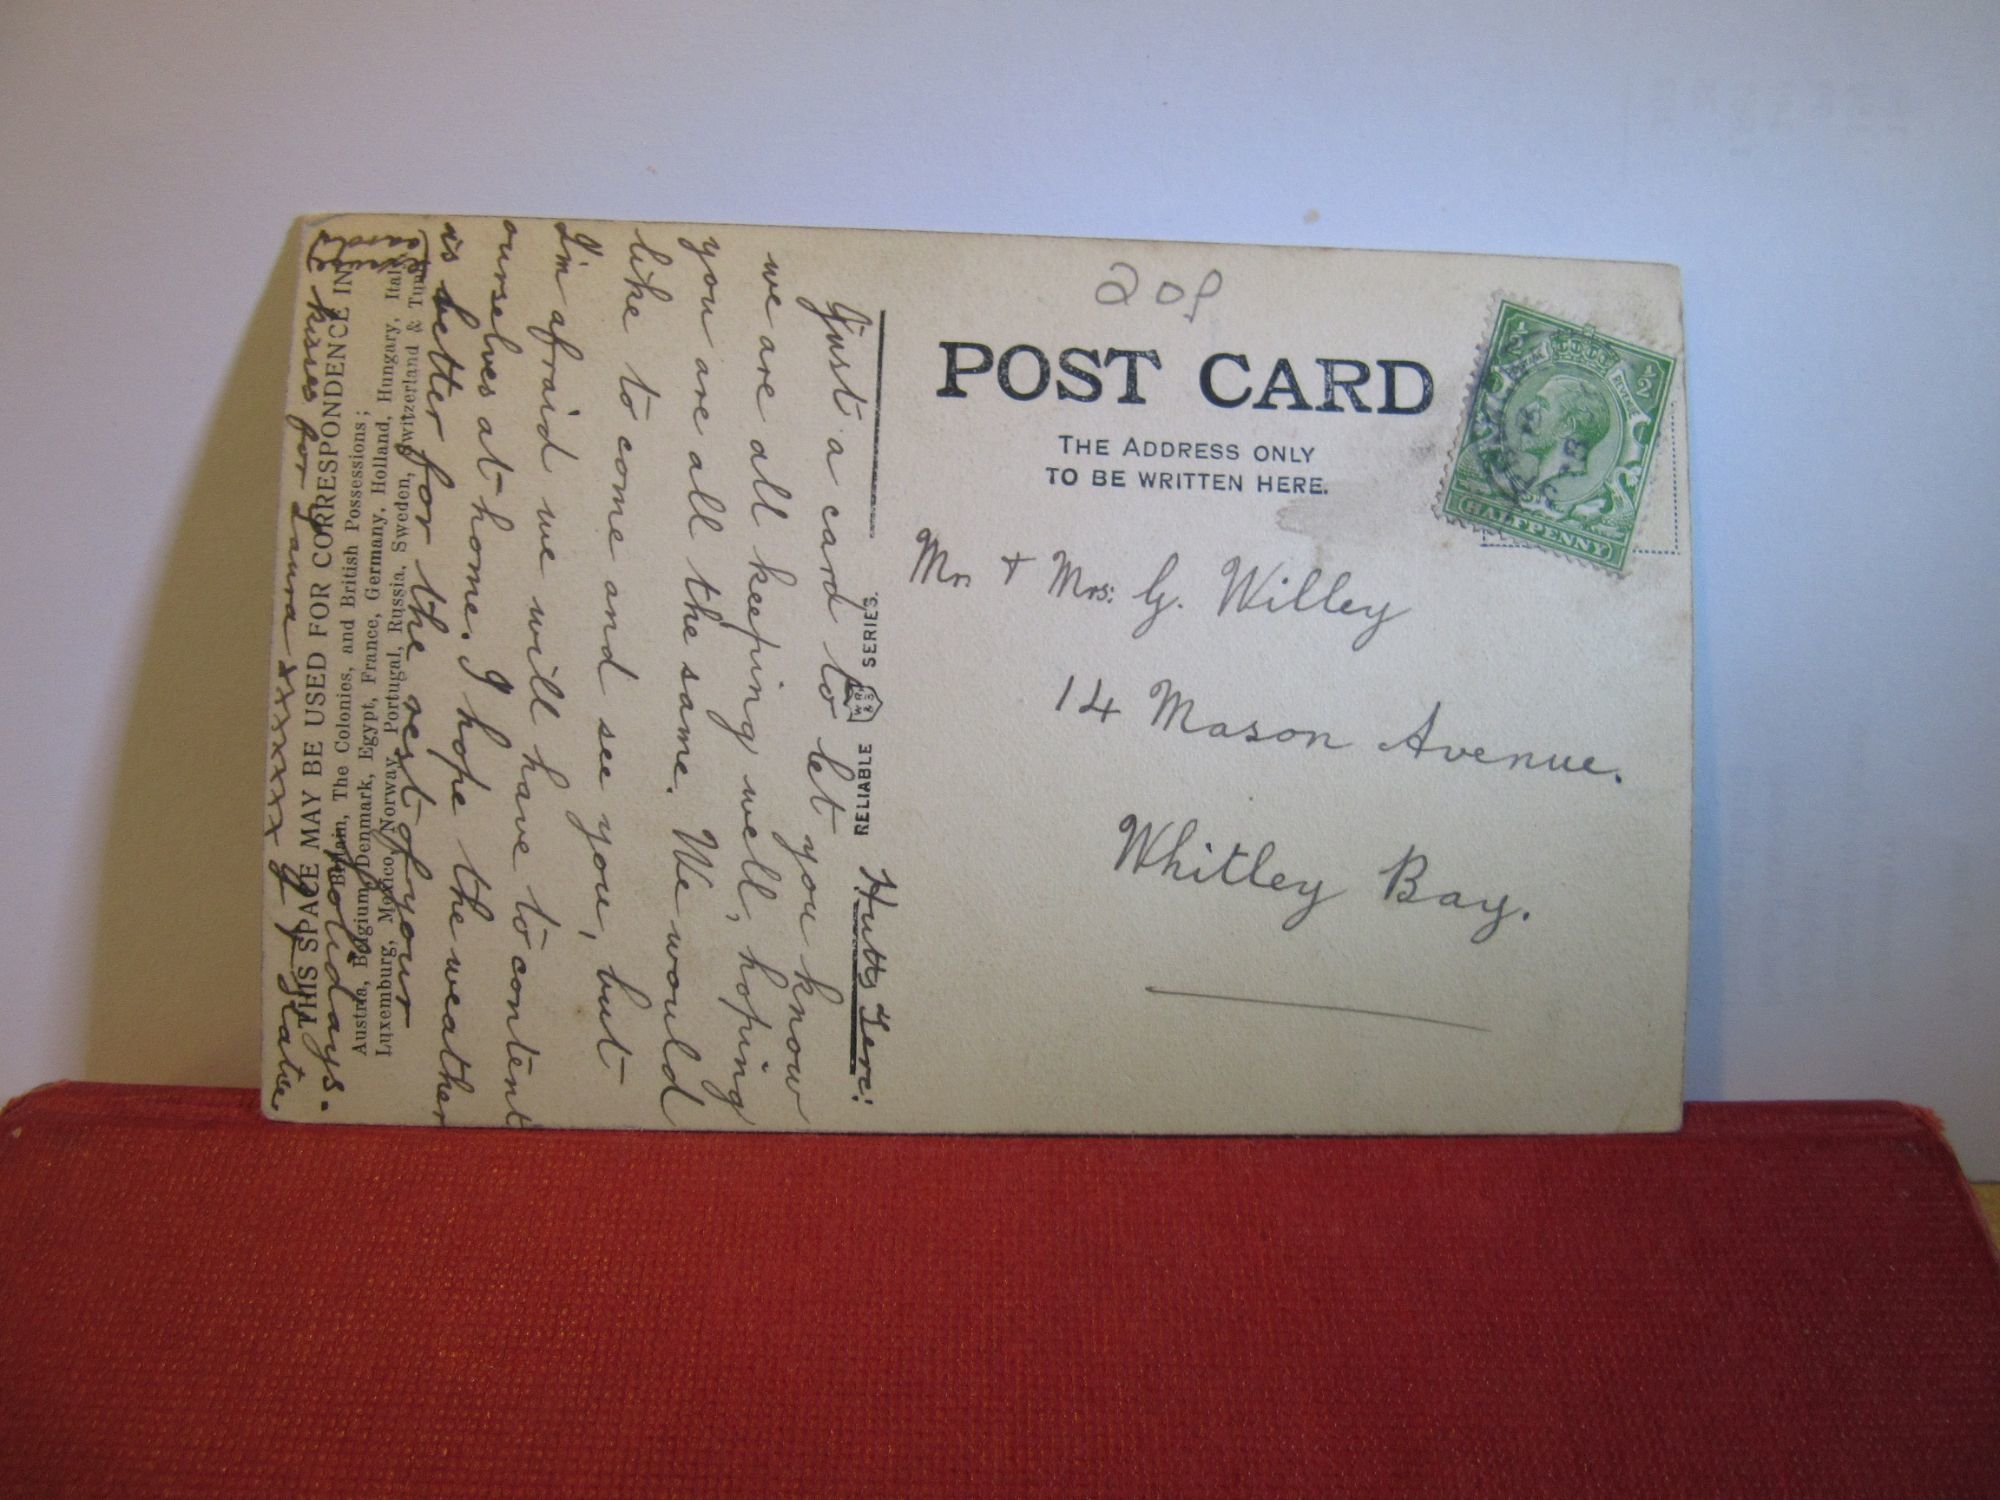 20p
POST CARD
THE ADDRESS ONLY
TO BE WRITTEN HERE.
½ ½
REVENUE
HALFPENNY
13
Mr. + Mrs: G. Willey
14 Mason Avenue.
Whitley Bay.
RELIABLE WR&S SERIES.
Hutts Terr:
Just a card to let you know
we are all keeping well, hoping
you are all the same. We would
like to come and see you, but
I'm afraid we will have to content
ourselves at home. I hope the weather
is better for the rest of your
holidays.
kisses for Laura xxxxxxx
THIS SPACE MAY BE USED FOR CORRESPONDENCE IN
Britain, The Colonies, and British Possessions;
Austria, Belgium, Denmark, Egypt, France, Germany, Holland, Hungary,
Luxemburg, Mexico, Norway, Portugal, Russia, Sweden, Switzerland &